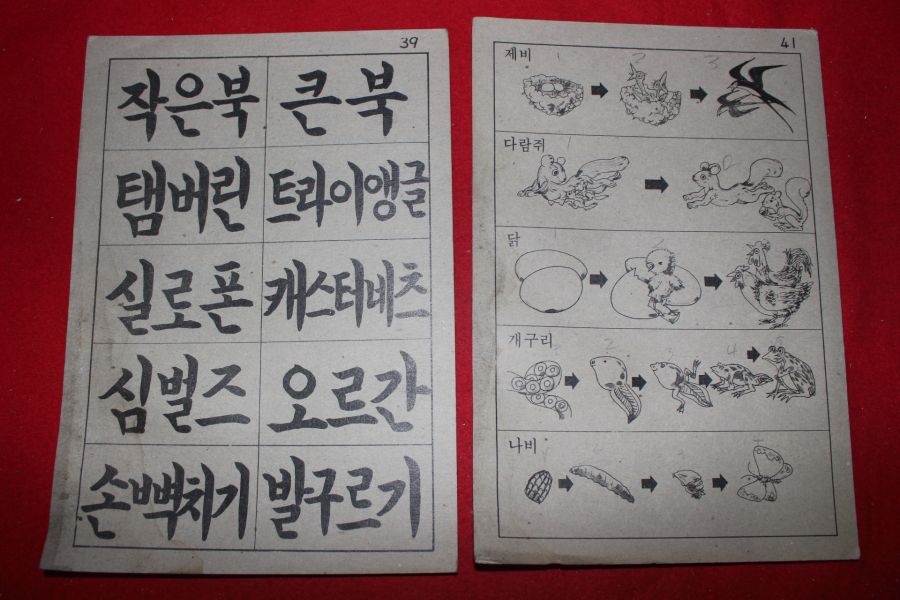 39
작은북 큰북
탬버린 트라이앵글
실로폰 캐스터네츠
심벌즈 오르간
손뼉치기 발구르기
41
제비
2 3
다람쥐
닭
개구리
2 3 4 5
나비